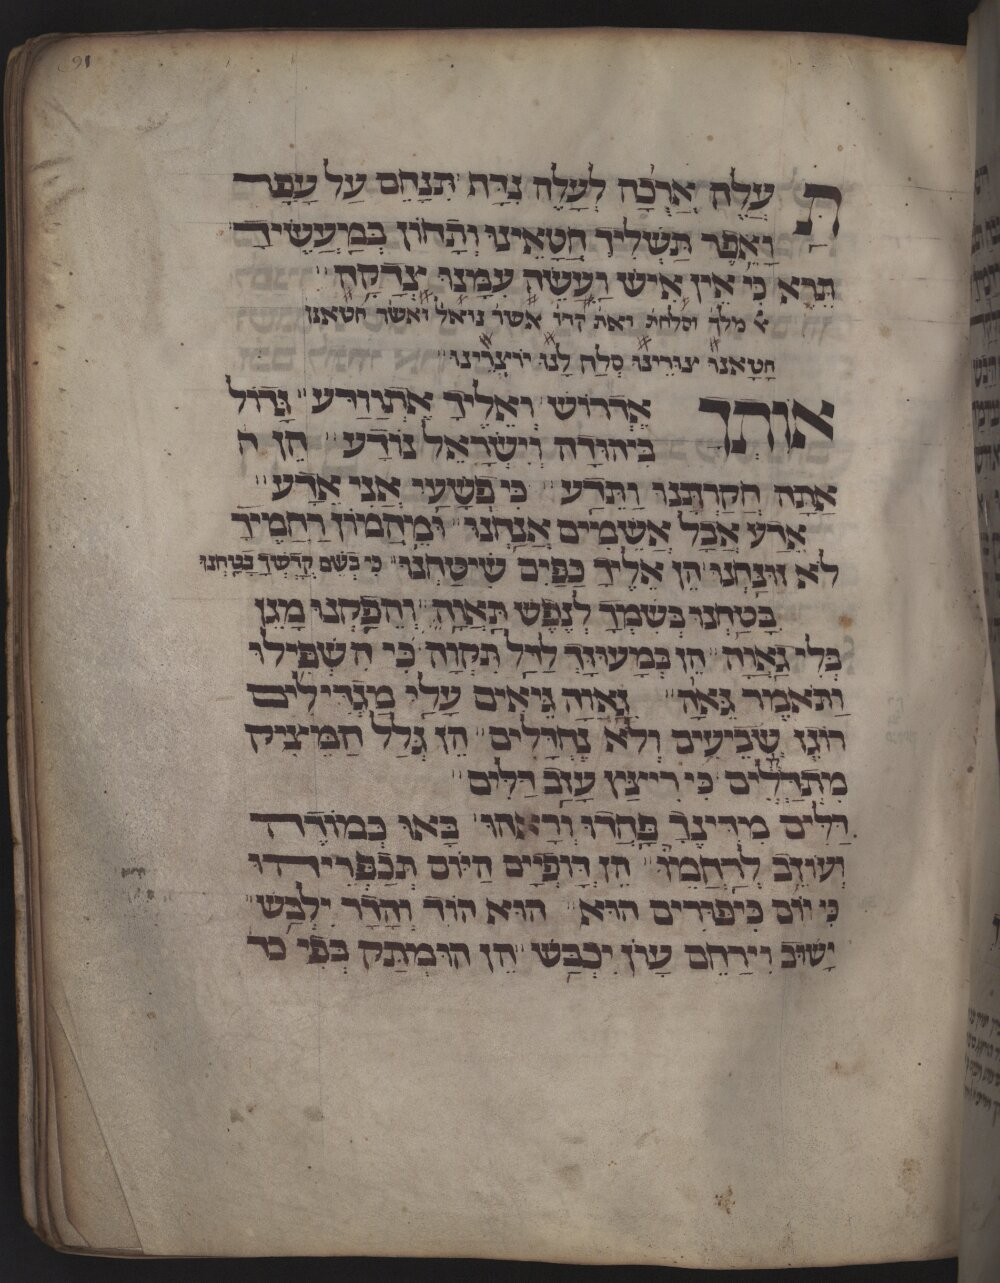 91
תַּעֲלֶה אֲרֻכָה לְעָלֶה נִדָּח תִּנָּחֵם עַל עָפָר
וָאֵפֶר תַּשְׁלִיךְ חֲטָאֵינוּ וְתָחוֹן בְּמַעֲשֶׂיךָ
תֵּרֶא כִּי אֵין אִישׁ וַעֲשֵׂה עִמָּנוּ צְדָקָה
מלך וסלחת ואת קדו אשר נואל ואשר חטאנו
חָטָאנוּ צוּרֵינוּ סְלַח לָנוּ יוֹצְרֵינוּ
אוֹתְךָ אֶדְרוֹשׁ וְאֵלֶיךָ אֶתְוַדַּע גָּדוֹל
בִּיהוּדָה וְיִשְׂרָאֵל נוֹדָע הֵן ה
אַתָּה חֲקַרְתָּנוּ וַתֵּדַע כִּי פְשָׁעַי אֲנִי אֵדָע
אֵדַע אֲבָל אֲשֵׁמִים אֲנַחְנוּ וּמֵהֲמוֹן רַחֲמֶיךָ
לֹא זוּנַחְנוּ הֵן אֵלֶיךָ כַפַּיִם שִׁיטַחְנוּ כִּי בְשֵׁם קָדְשְׁךָ בָטָחְנוּ
בָּטַחְנוּ בְּשִׁמְךָ לְנֶפֶשׁ תַּאֲוָה וְהֵפַקְנוּ מָגֵן
בְּלִי גַאֲוָה הֵן בְּמָעוּזָּךְ לַדַּל תִּקְוָה כִּי הִשְׁפִּילוּ
וַתֹּאמֶר גֵּוָה גַאֲוָה גֵּיאִים עָלַי מַגְדִּילִים
רוֹגֶז שְׂבֵיעִים וְלֹא נֶחְדָּלִים הֵן גְּלַל הַמֵּצִיק
מִתְדַּלְּלִים כִּי רִיצֵּץ עָזַב דַּלִּים
דַּלִּים מִדִּינְךָ פָּחֲדוּ וְרָאֲתוּ בָּאוּ כְּמוֹדֶה
וְעוֹזֵב לְרַחֲמֵהוּ הֵן דּוֹפְיָם הַיּוֹם תְּכַפְּרֵיהוּ
כִּי יוֹם כִּיפּוּרִים הוּא הוּא הוֹד וְהָדָר יִלְבַּשׁ
יָשׁוּב וִירַחֵם עָוֹן יִכְבַּשׁ הֵן הוּמְתַּק בְּפִי כד